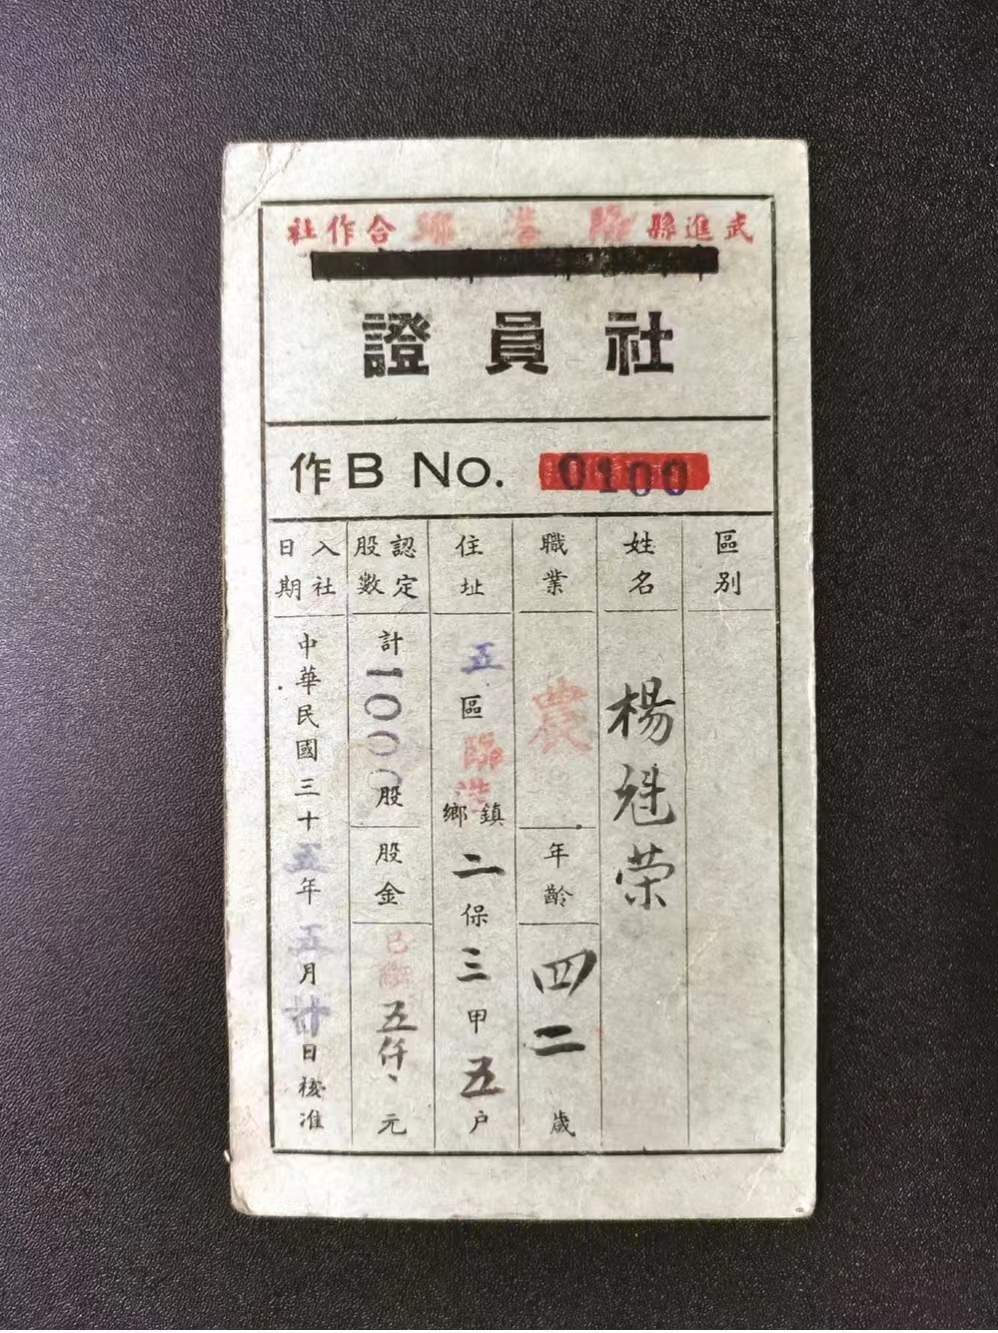 武進縣臨港鄉合作社
社員證
作B No. 0100
區別
姓名 楊兟荣
職業 農
年齡 四二歲
住址 五區臨港鄉鎮二保三甲五户
認定股數 計1000股
股金 已繳五仟、元
入社日期 中華民國三十五年五月廿日核准